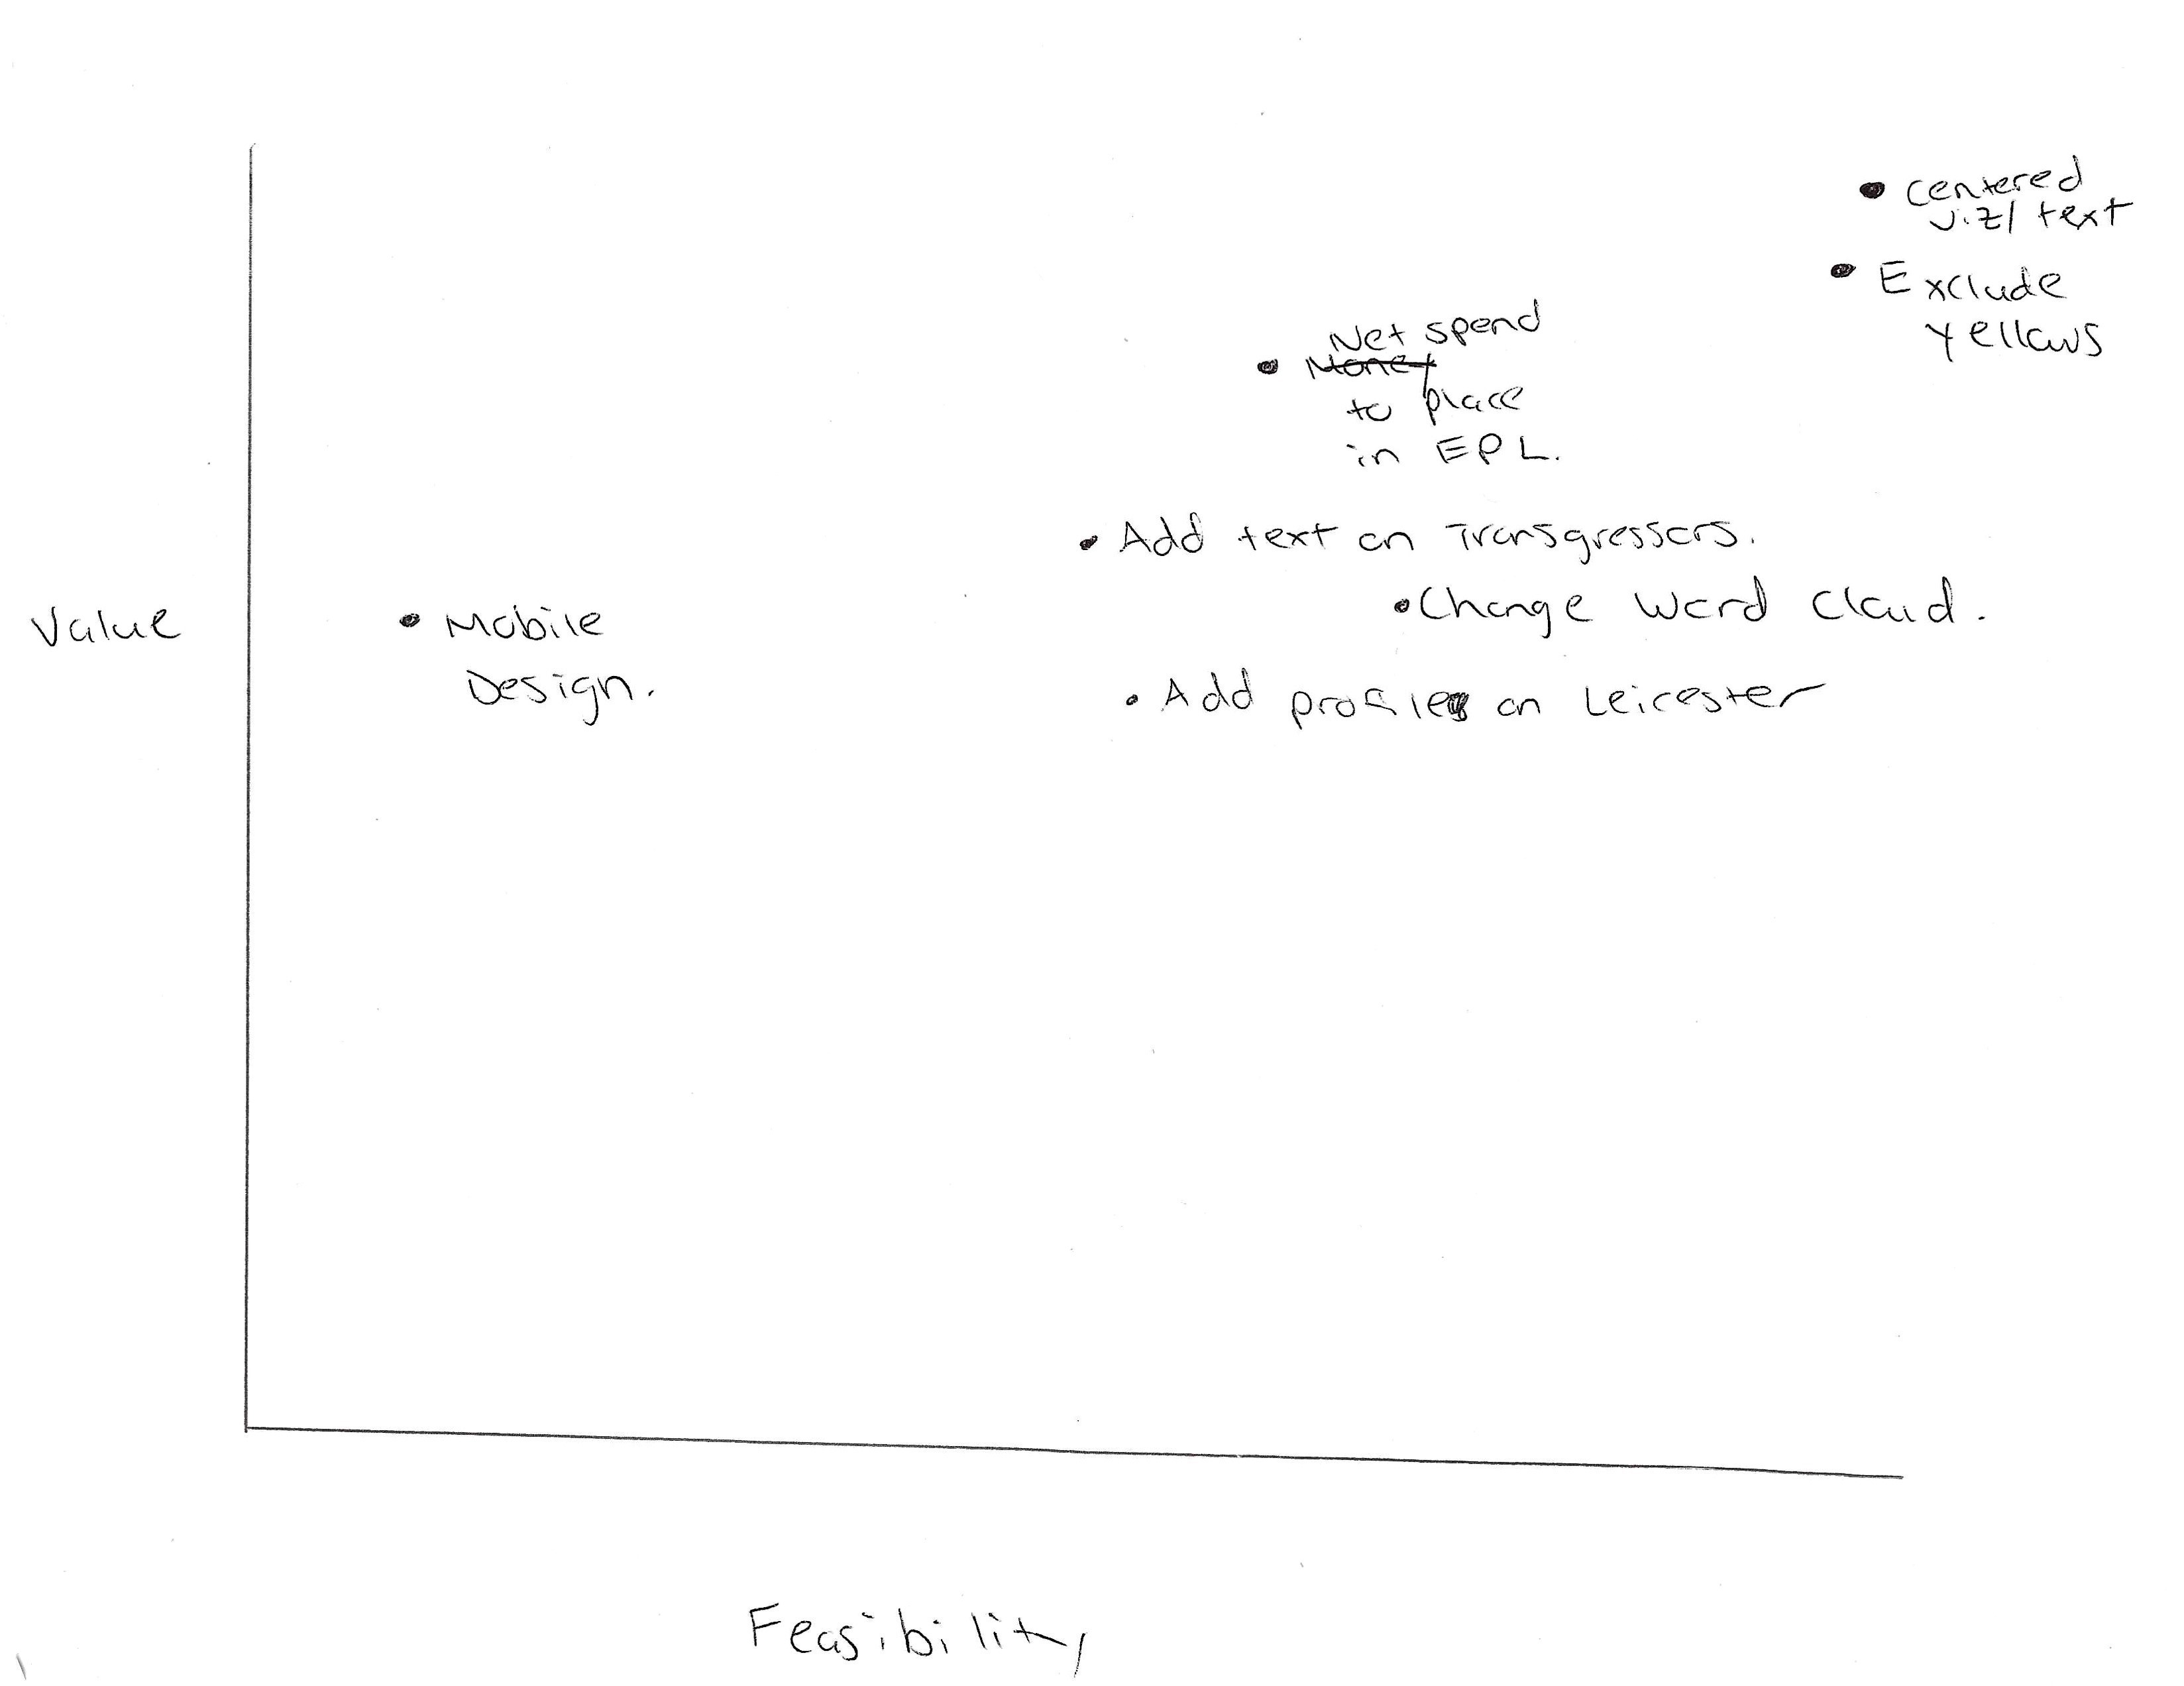 • Centered
viz/text
• Exclude
Yellows
Net spend
• Money
to place
in EPL.
• Add text on Transgressors.
• Change Word Cloud.
Value
• Mobile
Design.
• Add profile on Leicester
Feasibility